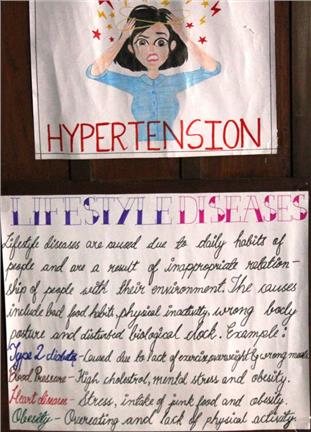 HYPERTENSION
LIFESTYLE DISEASES
Lifestyle diseases are caused due to daily habits of
people and are a result of inappropriate relation-
ship of people with their environment. The causes
include bad food habits, physical inactivity, wrong body
posture and disturbed biological clock. Example:
Type 2 diabetes - Caused due to lack of exercise, overweight by wrong meals.
Blood Pressure - High cholestrol, mental stress and obesity.
Heart disease - Stress, intake of junk food and obesity.
Obesity - Overeating and lack of physical activity.